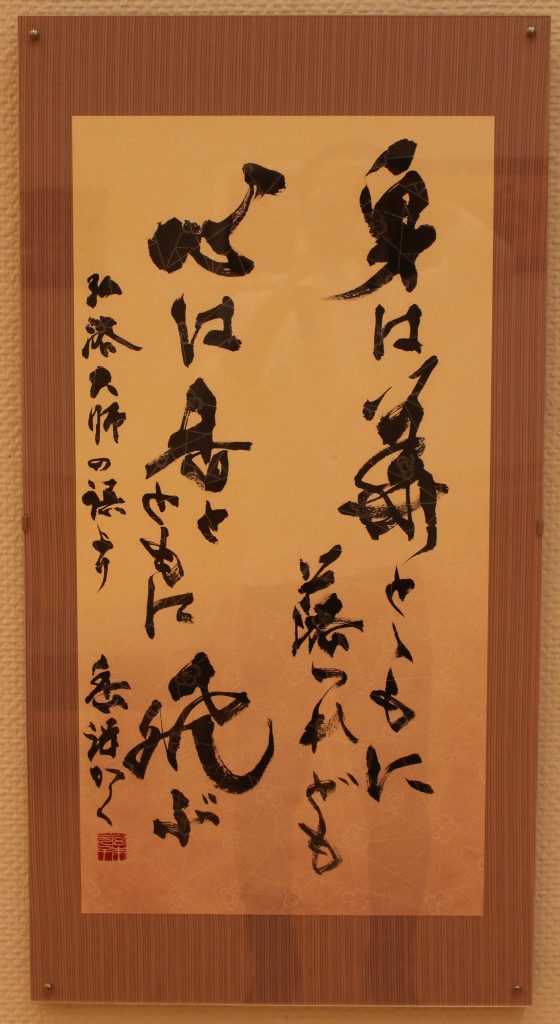 身は華とゝもに
落つれども
心は香とともに飛ぶ
弘法大師の語より
かく